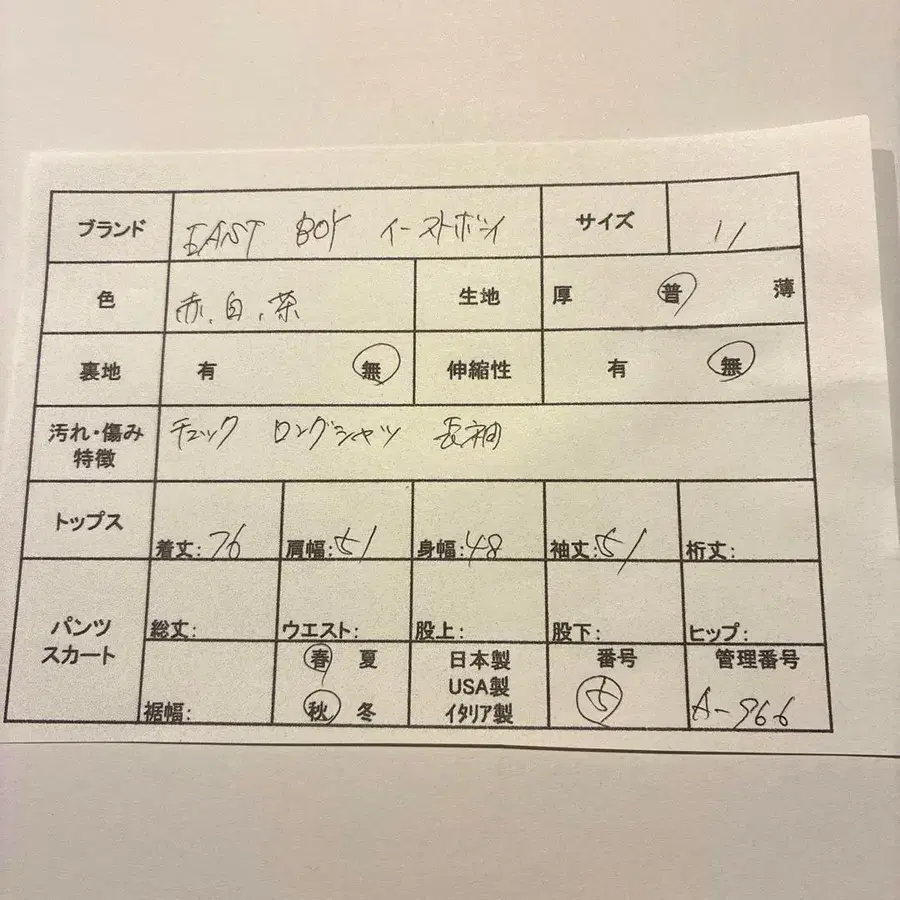 ブランド EAST BOY イーストボイ サイズ 11
色 赤、白、茶 生地 厚 普 薄
裏地 有 無 伸縮性 有 無
汚れ・傷み
特徴 チェック ロングシャツ 長袖
トップス 着丈:76 肩幅:51 身幅:48 袖丈:51 裄丈:
パンツ
スカート
総丈: ウエスト: 股上: 股下: ヒップ:
裾幅: 春 夏 秋 冬
日本製
USA製
イタリア製
番号 5
管理番号 A-966